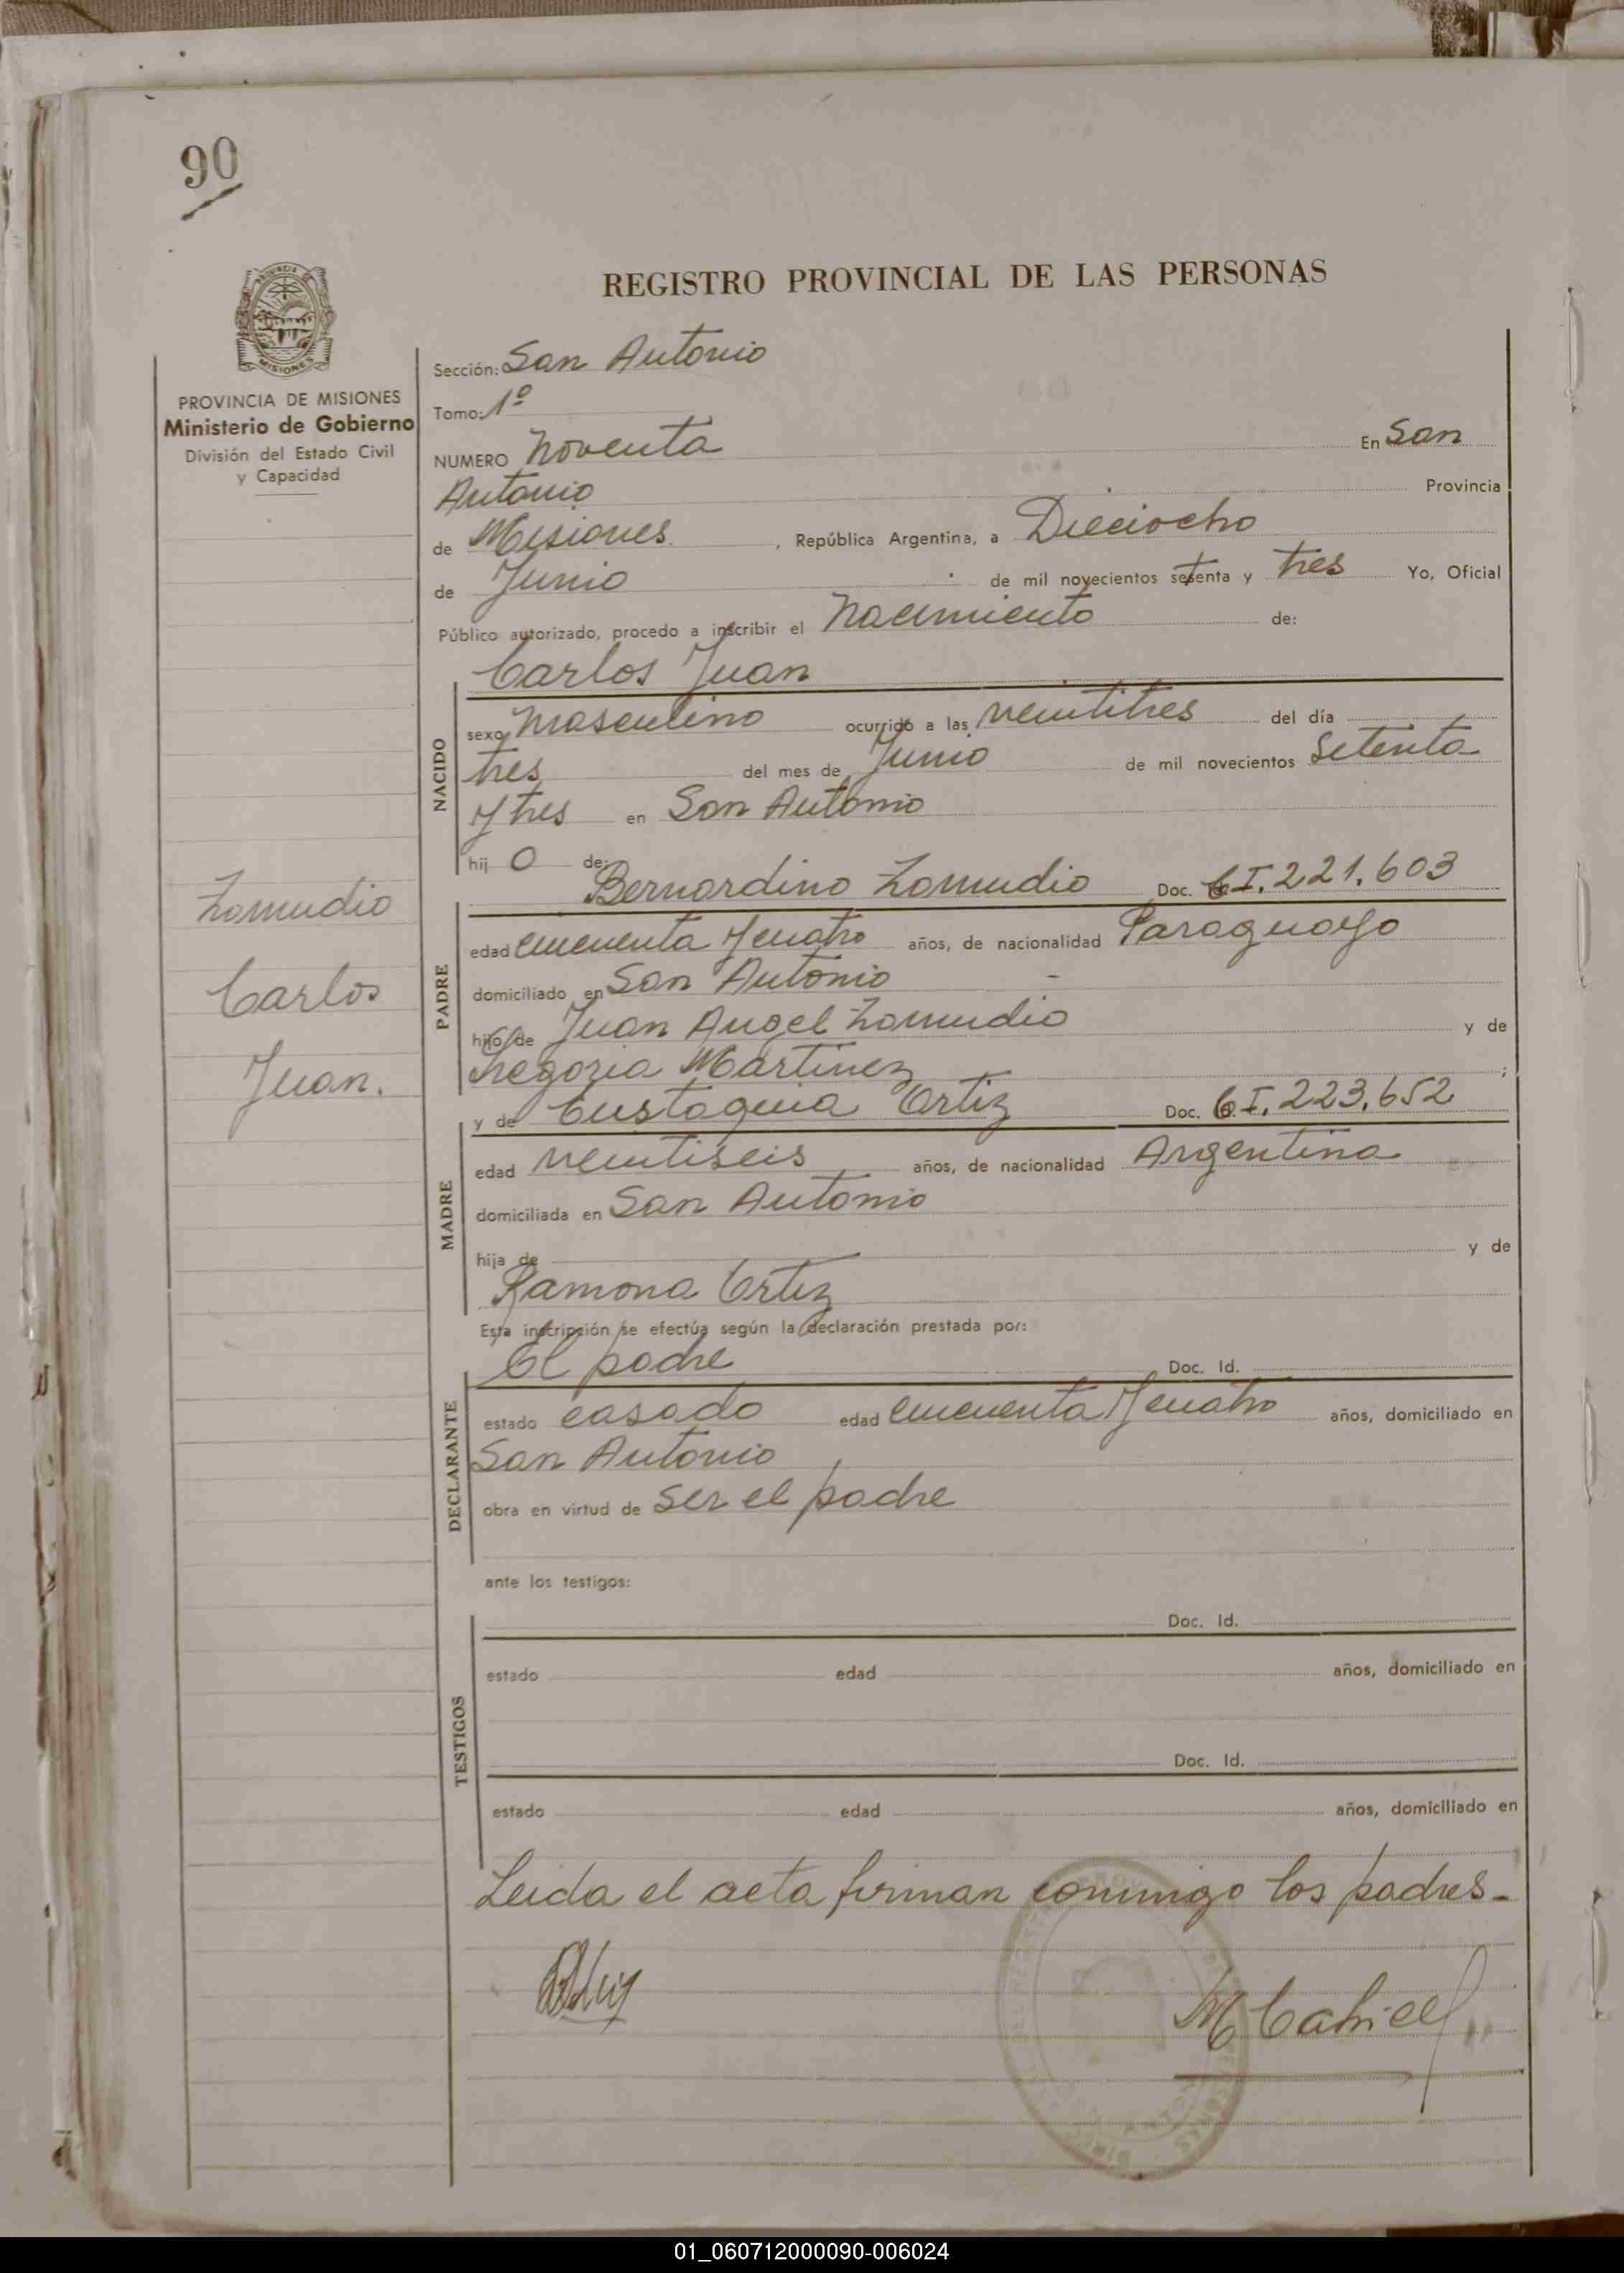 90
REGISTRO PROVINCIAL DE LAS PERSONAS
PROVINCIA DE MISIONES
Ministerio de Gobierno
División del Estado Civil
y Capacidad
Sección: San Antonio
Tomo: 1º
NUMERO Noventa En San
Antonio Provincia
de Misiones , República Argentina, a Dieciocho
de Junio de mil novecientos setenta y tres Yo, Oficial
Público autorizado, procedo a inscribir el Nacimiento de:
Carlos Juan
NACIDO
sexo masculino ocurrido a las veintitres del día
tres del mes de Junio de mil novecientos setenta
y tres en San Antonio
hij o de:
Bernardino Zamudio Doc. C.I. 221.603
PADRE
edad cincuenta y cuatro años, de nacionalidad Paraguayo
domiciliado en San Antonio
hijo de Juan Angel Zamudio y de
Martinez ;
y de Eustaquia Ortiz Doc. C.I. 223.652
MADRE
edad veintiseis años, de nacionalidad Argentina
domiciliada en San Antonio
hija de y de
Ramona Ortiz
Esta inscripción se efectúa según la declaración prestada por:
El padre Doc. Id.
DECLARANTE
estado casado edad cincuenta y cuatro años, domiciliado en
San Antonio
obra en virtud de ser el padre
ante los testigos:
TESTIGOS
Doc. Id.
estado edad años, domiciliado en
Doc. Id.
estado edad años, domiciliado en
Leida el acta firman conmigo los padres-
Zamudio
Carlos
Juan.
01_060712000090-006024